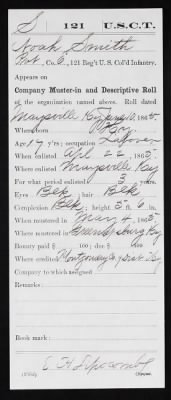 S 121 U.S.C.T.
Noah Smith
Pvt., Co. G, 121 Reg't U. S. Col'd Infantry.
Appears on
Company Muster-in and Descriptive Roll
of the organization named above. Roll dated
Maysville Ky, 1865.
Where born Ky.
Age 19 y'rs; occupation Laborer
When enlisted Apl 22, 1865.
Where enlisted Maysville Ky
For what period enlisted 3 years.
Eyes Blk; hair Blk
Complexion Blk; height 5 ft. 6 in.
When mustered in May 4, 1865.
Where mustered in Greensburg Ky
Bounty paid $ 100; due $ 100
Where credited Montgomery Co, Dist. Ky
Company to which assigned
Remarks:
Book mark:
E. H. Lipscombe
Copyist.